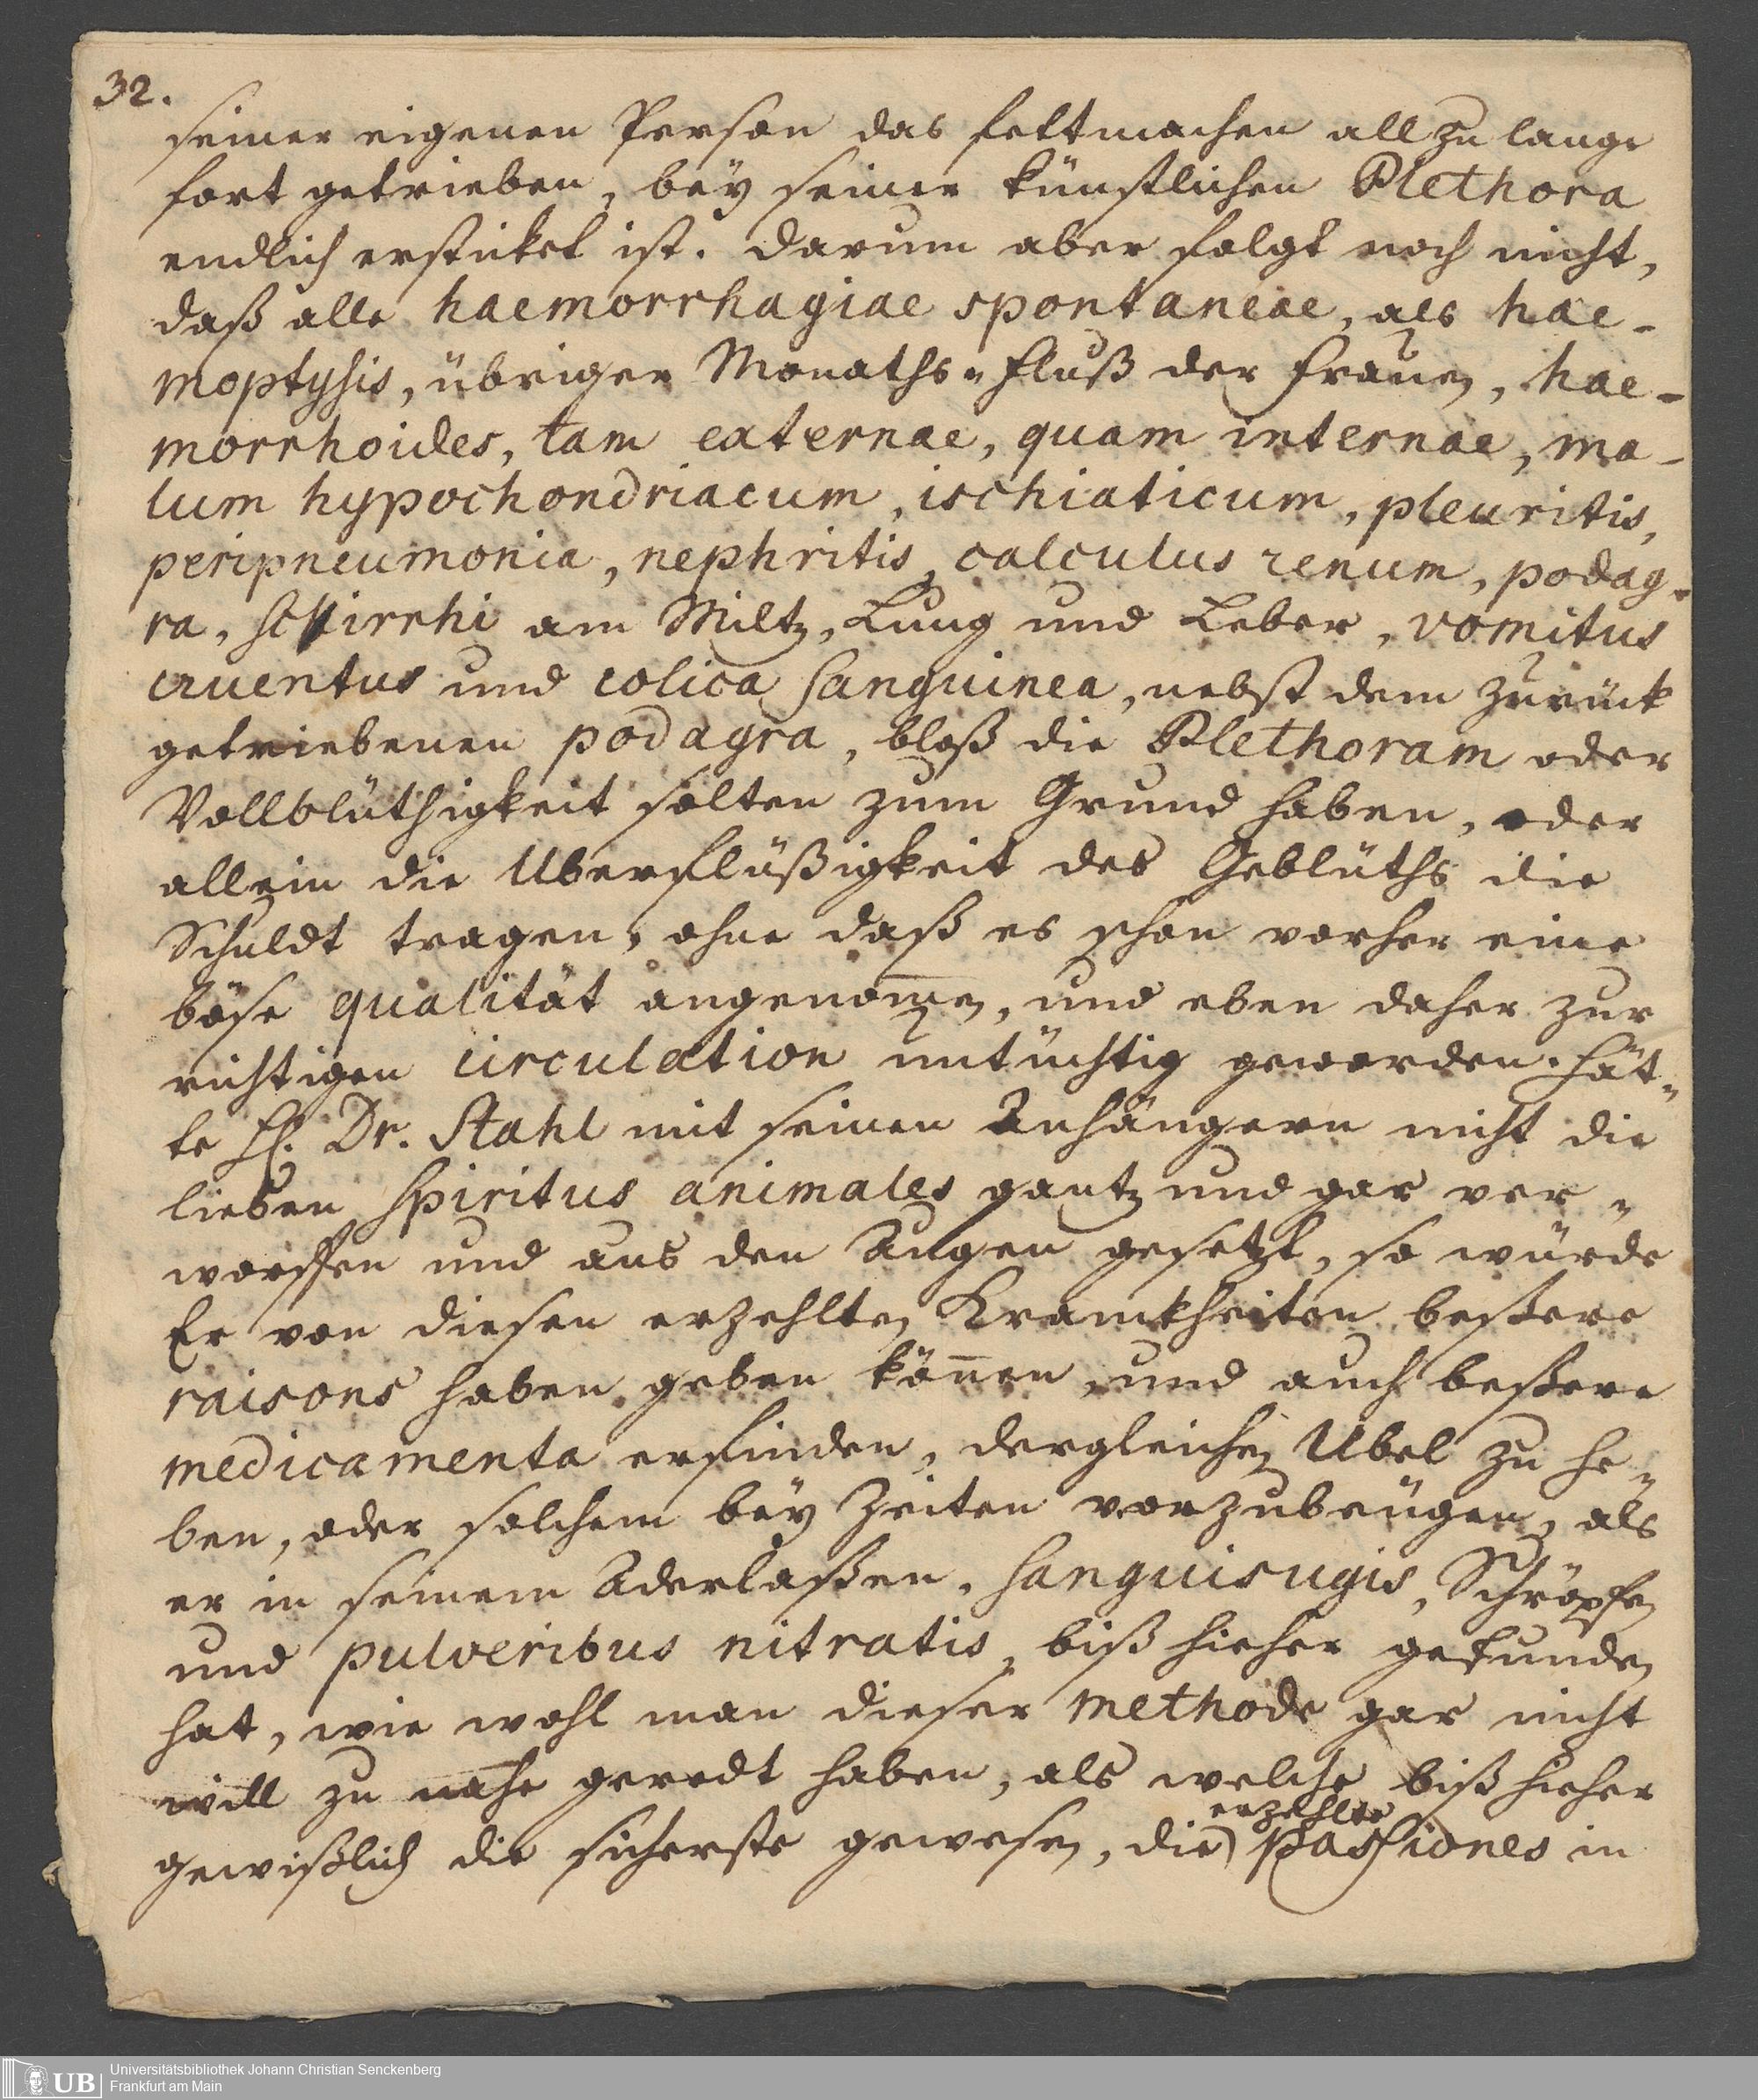 32.
seiner eigenen Person das fettmachen allzu lange
fort getrieben, beÿ seiner künstlichen Plethora
endlich ersticket ist. Darum aber folgt noch nicht,
daß alle haemorrhagiae spontaneae, als hae-
moptysis, übriger Monaths-Fluß der Frauen, hae-
morrhoides, tam externae, quam internae, ma-
lum hypochondriacum, ischiaticum, pleuritis,
peripneumonia, nephritis, calculus renum, podag-
ra, scirrhi am Miltz, Lung und Leber, vomitus
cruentus und colica sanguinea, nebst dem zurück
getriebenen podagra, bloß die Plethoram oder
Vollblüthigkeit solten zum Grund haben, oder
allein die Uberflüßigkeit des Geblüths die
Schuldt tragen, ohne daß es schon vorher eine
böse qualität angenom̅en, und eben daher zur
richtigen circulation untüchtig geworden. Hät-
te H. Dr. Stahl mit seinen Anhängern nicht die
lieben Spiritus animales gantz und gar ver-
worffen und aus den Augen gesetzt, so würde
Er von diesen erzehlten Kranckheiten beßere
raisons haben geben kön̅en, und auch beßere
medicamenta erfinden, dergleichen Übel zu he-
ben, oder solchem beÿ Zeiten vorzubeugen, als
er in seinem Aderlaßen, Sanguisugis, Schröpfen
und pulveribus nitratis, biß hieher gefunden
hat, wie wohl man dieser Methode gar nicht
will zu nahe geredt haben, als welche biß hieher
gewißlich die sicherste gewesen, die erzehlte passiones in
UB
Universitätsbibliothek Johann Christian Senckenberg
Frankfurt am Main